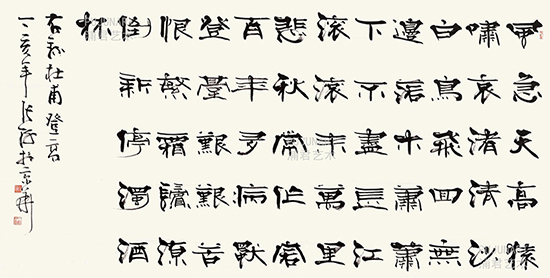 風急天高猿
嘯哀渚清沙
白鳥飛回無
邊落木蕭蕭
下不盡長江
滾滾來萬里
悲秋常作客
百年多病獨
登臺艱難苦
恨繁霜鬢潦
倒新停濁酒
杯
右錄杜甫登高
丁亥年張於京華